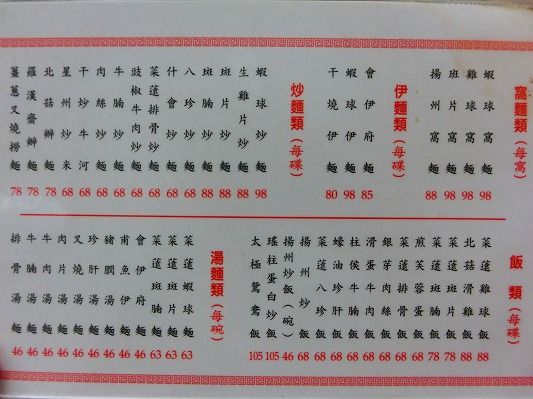 窩麵類（每窩）
蝦球窩麵 98
雞球窩麵 98
班片窩麵 98
揚州窩麵 88
伊麵類（每碟）
會伊府麵 85
蝦球伊麵 98
干燒伊麵 80
炒麵類（每碟）
蝦球炒麵 98
生雞片炒麵 88
斑片炒麵 88
斑腩炒麵 88
八珍炒麵 68
什會炒麵 68
菜薳排骨炒麵 68
豉椒牛肉炒麵 68
牛腩炒麵 68
肉絲炒麵 68
干炒牛河 68
星州炒米 68
北菇辦麵 78
羅漢齋辦麵 78
薑蔥叉燒撈麵 78
飯類（每碟）
菜薳雞球飯 88
北菇滑雞飯 88
菜薳斑腩飯 78
煎芙蓉蛋飯 78
菜薳排骨飯 68
銀芽肉絲飯 68
滑蛋牛肉飯 68
柱侯牛腩飯 68
蠔油珍肝飯 68
菜薳八珍飯 68
揚州炒飯 68
揚州炒飯（碗） 46
瑤柱蛋白炒飯 105
太極鴛鴦飯 105
湯麵類（每碗）
菜薳蝦球麵 63
菜薳斑片麵 63
菜薳斑腩麵 63
會伊府麵 46
甫魚伊麵 46
豬膶湯麵 46
珍肝湯麵 46
叉燒湯麵 46
肉片湯麵 46
牛肉湯麵 46
牛腩湯麵 46
排骨湯麵 46